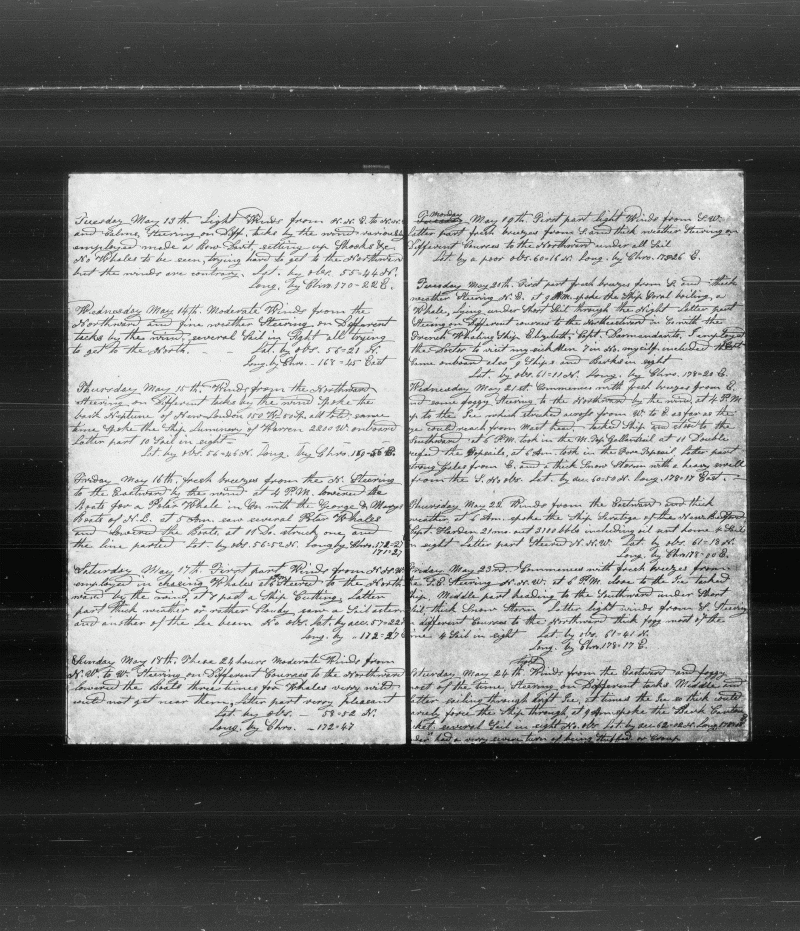 Tuesday May 13th. Light Winds from N.N.E. to N.W.
and Calms, Steering on Diff. tacks by the wind variously
employed made a Row Suit, setting up Shooks &c
No Whales to be seen, trying hard to get to the Northward
but the winds are contrary. Lat. by obs. 55-44 N.
Long. by Chro. 170-22 E.
Wednesday May 14th. Moderate Winds from the
Northward and fine weather Steering on Different
tacks by the wind, several Sail in Sight all trying
to get to the North. Lat. by obs. 56-21 N.
Long. by Chro. 168-45 East
Thursday May 15th Winds from the Northward
Steering on Different tacks by the wind Spoke the
bark Neptune of New London 150 W. 50 Sp all told, same
time spoke the Ship of Warren 2200 W. onboard
Latter part 10 Sail in sight
Lat. by obs. 56-46 N. Long. by Chro. 169-56 E.
Friday May 16th. fresh breezes from the N. Steering
to the Eastward by the wind at 4 P.M. lowered the
Boats for a Polar Whale in Co. with the George & Marys
Boats of N.L. at 5 Am. saw several Polar Whales
and Lowered the Boats, at 11 Do. struck one, and
the line parted Lat. by obs. 56-52 N. Long by Chro. 172-27
171-27
Saturday May 17th First part Winds from N.N.W.
employed in chasing Whales at 6 Steered to the North
ward by the wind, at 8 past a Ship Cutting, Latter
part thick weather or rather Cloudy, saw a Sail astern
and another of the Lee beam No obs. Lat. by acc. 57-22
Long. by - 172-27 E
Sunday May 18th. These 24 hours Moderate Winds from
N.W. to W. Steering on Different Courses to the Northward
lowered the Boats three times for Whales very wild
could not get near them, latter part very pleasant
Lat. by obs. - 58-52 N.
Long. by Chro. - 172-47
Monday
May 19th. First part light Winds from S.W.
latter part fresh breezes from S. and thick weather Steering on
Different Courses to the Northward under all Sail
Lat by a poor obs. 60-16 N. Long. by Chro. 26 E.
Tuesday May 20th. First part fresh breezes from S. and thick
weather Steering N.E. at 9 AM. spoke the Ship Coral boiling, a
Whale, lying under Short Sail through the Night Latter part
Steering on Different courses to the Northeastward in Co with the
French Whaling Ship Elizabeth, Capt.
the Doctor to visit my sick Men 7 in No. myself included
came onboard also 4 Ships and Barks in sight
Lat. by obs. 61-11 N. Long. by Chro. 178-20 E.
Wednesday May 21 st. Commences with fresh breezes from E.
and some foggy Steering to the Northward by the wind, at 4 P.M.
up to the Ice which stretched across from W. to E. as far as the
eye could reach from Mast head, tacked Ship and stood to the
Southward at 6 P.M. took in the M. Top Gallantsail at 11 Double
reefed the Topsails, at 6 Am. took in the Fore Topsail, Latter part
strong gales from E. and a thick Snow Storm with a heavy swell
from the S. No obs. Lat. by acc. 60-50 N. Long. 178-17 East.
Thursday May 22. Winds from the Eastward and thick
weather, at 6 Am. spoke the Ship of New Bedford
Capt. 21 mo. out 3100 bbls including oil sent home, 4 Sail
in sight Latter part Steered N.N.W. Lat. by obs. 61-18 N.
Long. by Chro. 178-20 E.
Friday May 23nd. Commences with fresh breezes from
the S.E. Steering N.N.W. at 6 P.M. close to the Ice tacked
Ship, Middle part heading to the Southward under Short
Sail thick Snow Storm Latter light winds from W. Steering
on different Courses to the Northward thick fogg most of the
time 4 Sail in sight Lat by obs. 61-41 N.
Long. by Chro. 178-17 E.
Saturday May 24th. Winds from the Eastward and foggy
most of the time, Steering on Different tacks Middle and
latter sailing through loose Ice, at times the Ice so thick could
scarce force the Ship through at 9 Am. spoke the
several Sail in sight No obs. Lat by acc. 62-12 N. Long.
had a very severe turn of being